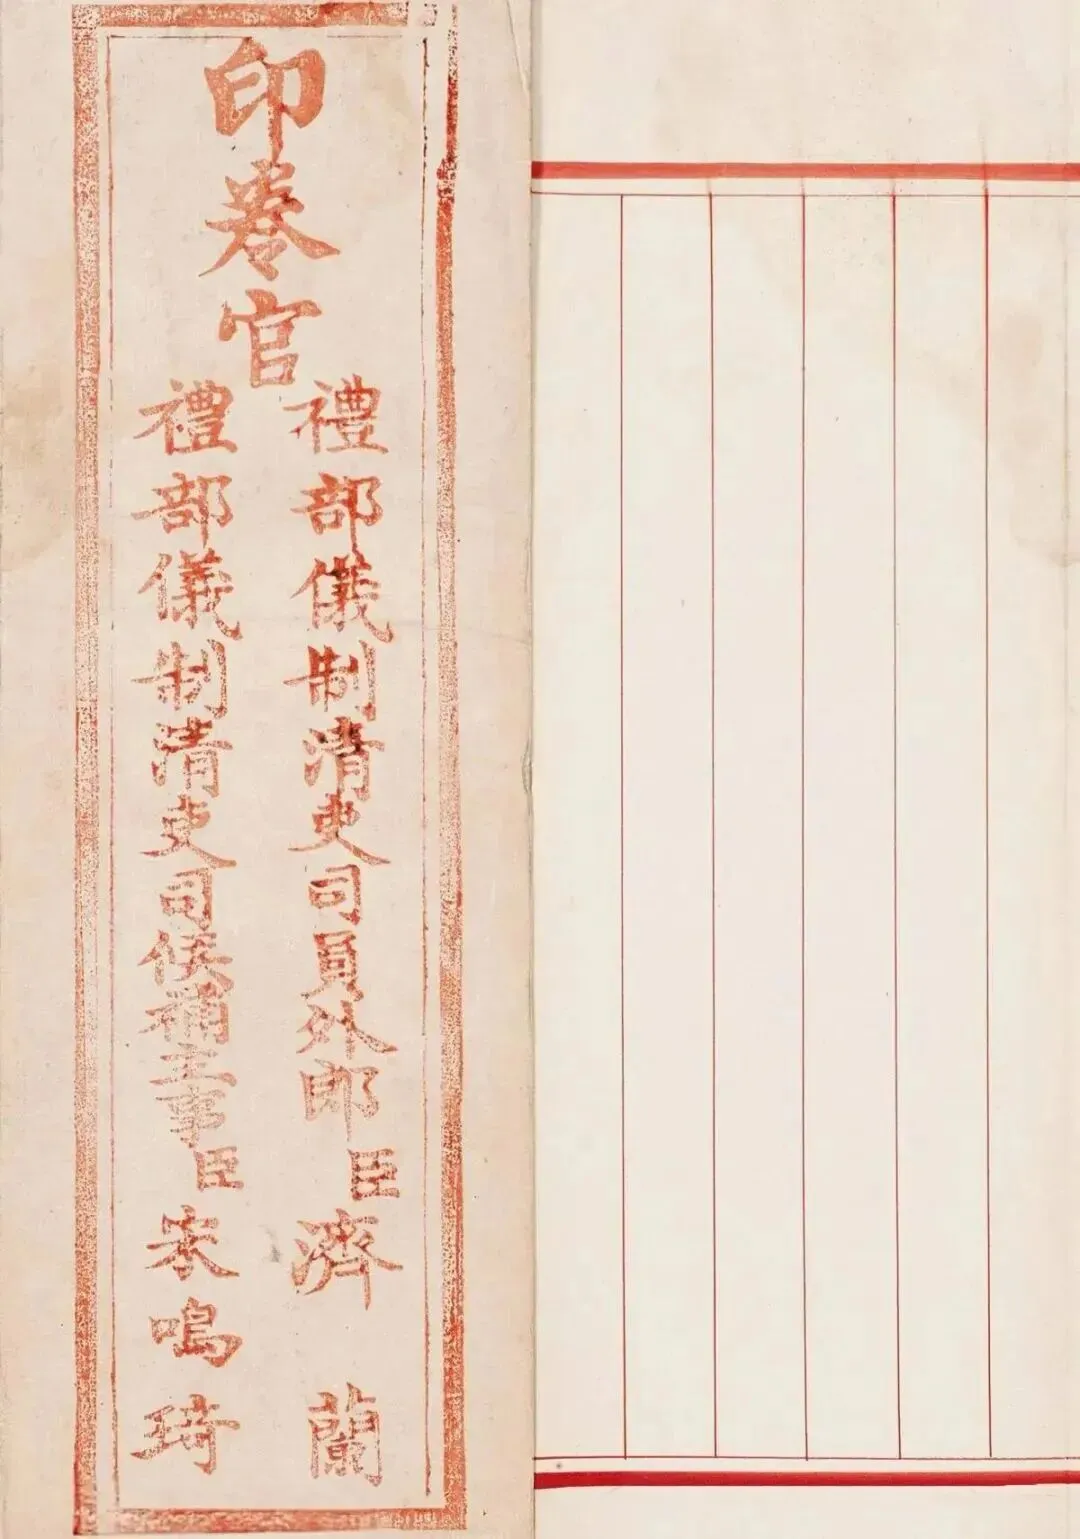 印卷官
禮部儀制清吏司員外郎臣濟蘭
禮部儀制清吏司候補主事臣宋鳴琦